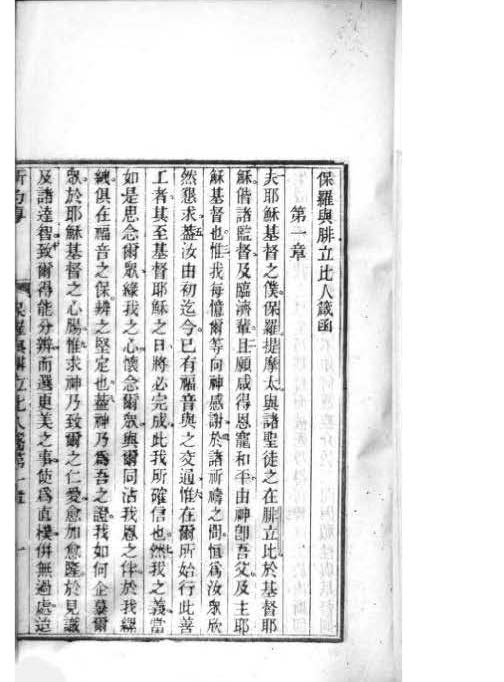 保羅與腓立比人箴函
第一章
夫耶穌基督之僕保羅提摩太與諸聖徒之在腓立比於基督耶
穌偕諸監督及臨濟輩且願咸得恩寵和平由神卽吾父及主耶
穌基督也惟我每憶爾等向神感謝於諸祈禱之間恒爲汝衆欣
然懇求葢汝由初迄今已有福音與之交通惟在爾所始行此善
工者其至基督耶穌之日將必完成此我所確信也然我之義當
如是思念爾衆緣我之心懷念爾衆與爾同沾我恩之伴於我縲
絏俱在福音之保辨之堅定也葢神乃爲吾之證我如何企慕爾
衆於耶穌基督之心腸惟求神乃致爾之仁愛愈加愈隆於見識
及諸達智致爾得能分辨而選更美之事使爲直樸併無過處迨
保羅與腓立比人箴 第一章 一